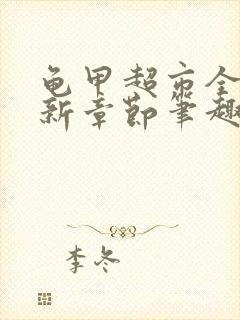 龟甲超市全
新章节笔趣
李冬